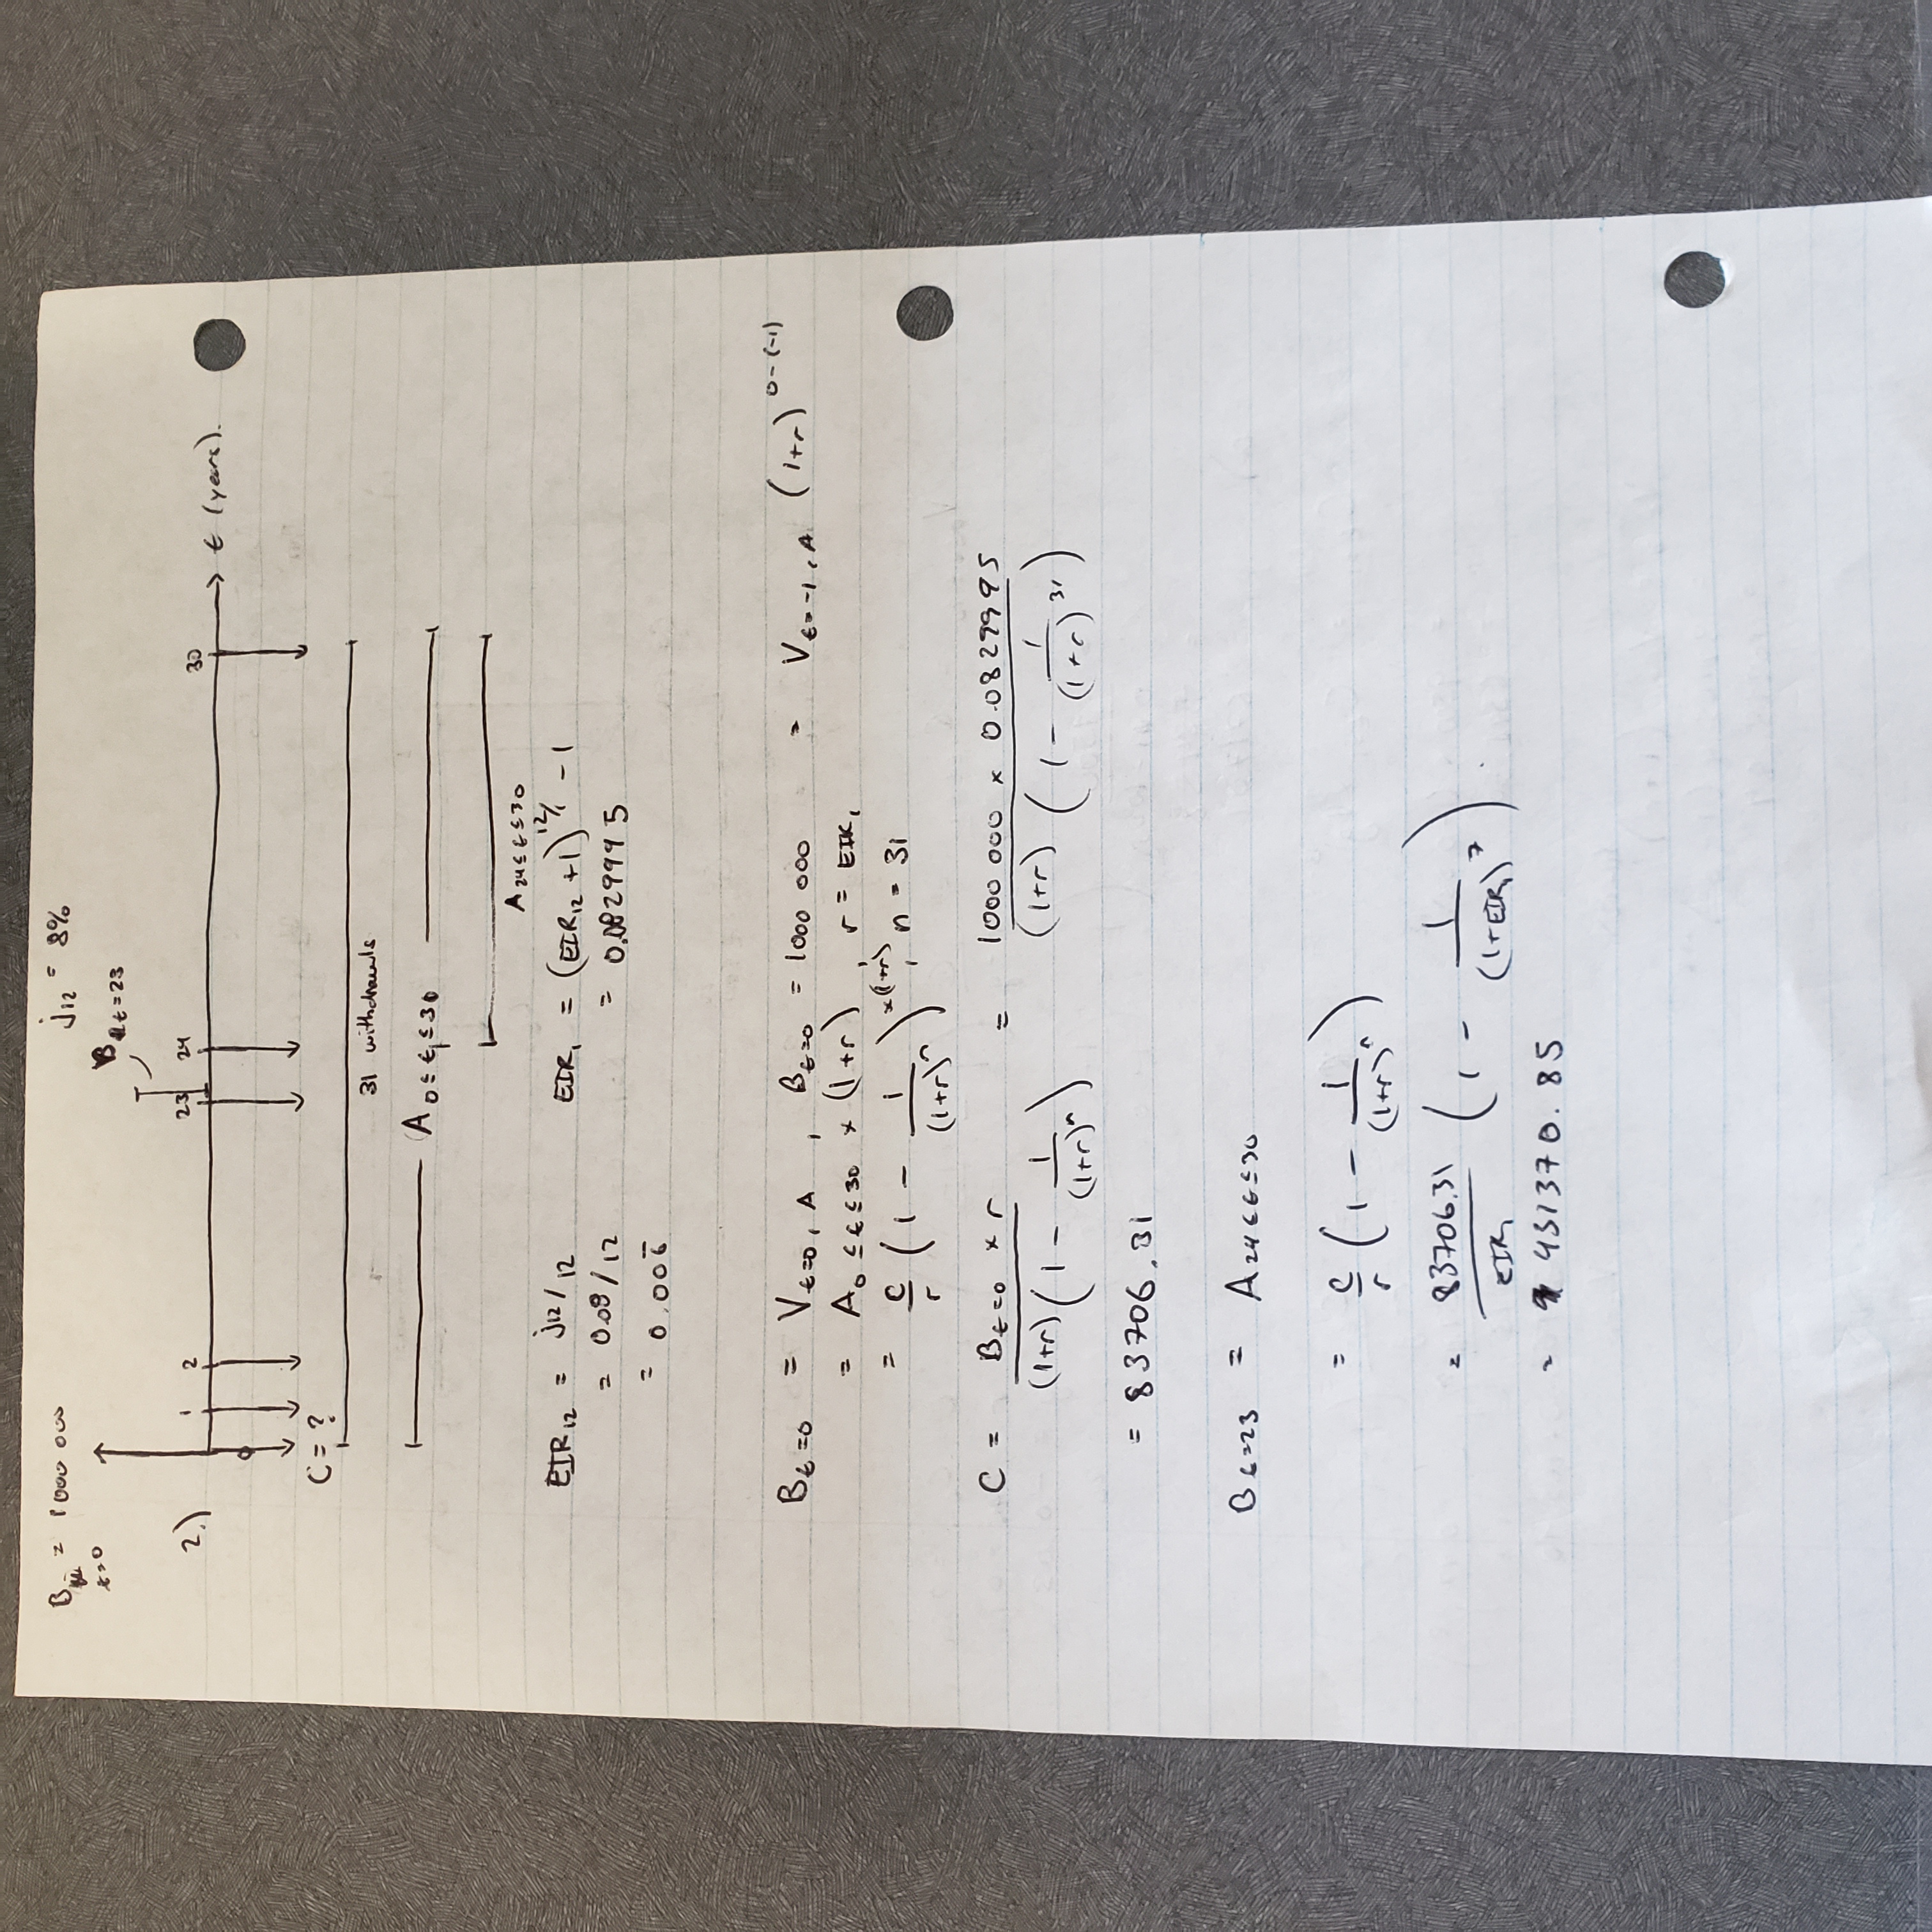 B t=0 = 1000 000
j12 = 8%
B t=23
2.)
1 2 23 24 30 t (years).
0
C = ?
31 withdrawls
A 0≤t≤30
A 24≤t≤30
EIR12 = j12/12 EIR1 = (EIR12 + 1)^12/1 - 1
= 0.08/12 = 0.0829995
= 0.006̄
B t=0 = V t=0, A , B t=0 = 1000 000 = V t=-1, A (1+r)^0-(-1)
= A 0≤t≤30 × (1+r) , r = EIR1
= C/r (1 - 1/(1+r)^n) ×(1+r) , n = 31
C = B t=0 × r / (1+r)(1 - 1/(1+r)^n) = 1000 000 × 0.0829995 / (1+r) (1 - 1/(1+r)^31)
= 83706.31
B t=23 = A 24≤t≤30
= C/r (1 - 1/(1+r)^n)
= 83706.31/EIR1 (1 - 1/(1+EIR1)^7).
= 431370.85